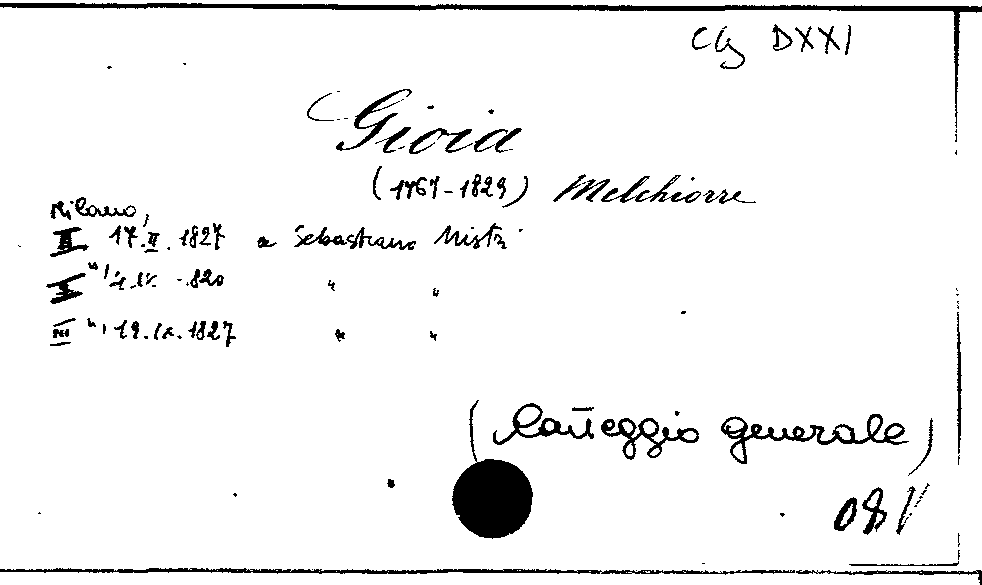 DXXI
Gioia
(1767-1829) Melchiorre
Milano,
II 17.II.1827 a Sebastiano
I " 820 " "
III " 19.IX.1827 " "
(Carteggio generale)